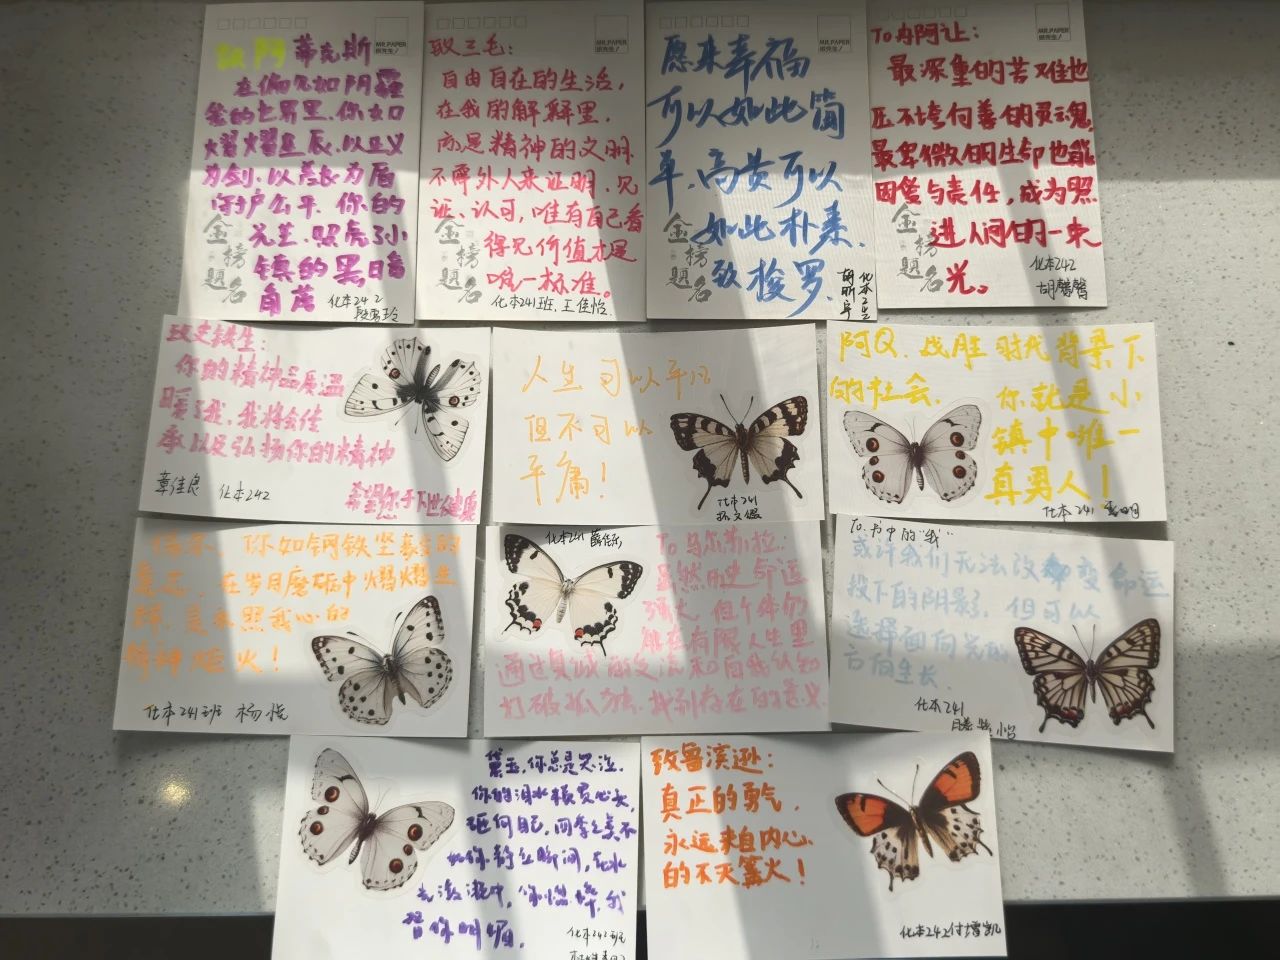 致阿蒂克斯
在偏见如阴霾
笼的世界里,你如
熠熠星辰,以正义
为剑,以善良为盾
守护公平,你的
光芒,照亮了小
镇的黑暗
角落
金榜题名
化本242
MR.PAPER
纸先生/
致三毛:
自由自在的生活,
在我的解释里,
就是精神的文明
不需外人来证明、见
证、认可,唯有自己看
得见价值才是
唯一标准。
金榜题名
化本241班.王佳怡
MR.PAPER
纸先生/
愿来幸福
可以如此简
单,高贵可以
如此朴素.
致梭罗.
金榜题名
化本242
胡昕宇
MR.PAPER
纸先生/
To冉阿让:
最深重的苦难也
压不垮向善的灵魂,
最卑微的生命也能
因爱与责任,成为照
进人间的一束
光。
金榜题名
化本242
MR.PAPER
纸先生/
致史铁生:
你的精神品质温
暖了我,我将会传
承以及弘扬你的精神
希望您于下世健康
章佳良 化本242
人生可以平凡
但不可以
平庸!
化本241
阿Q,战胜时代背景下
的社会.
你就是小
镇中唯一
真男人!
化本241
你如钢铁坚毅的
意志,在岁月磨砺中熠熠生
辉,是永照我心的
精神炬火!
化本241班 杨悦
化本241
To乌尔苏拉:
虽然历史命运
强大,但个体仍
能在有限人生里
通过真诚的交流和自我认知
打破孤独,找到存在的意义.
To.书中的"我"
或许我们无法改变命运
投下的阴影,但可以
选择面向光的
方向生长.
化本241
黛玉,你总是哭泣.
你的泪水模糊
如你静立脚间,花水
替你叫嚷.
化本242班
致鲁滨逊:
真正的勇气,
永远来自内心
的不灭篝火!
化本242付增凯